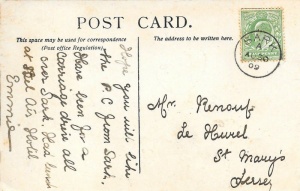 POST CARD.
This space may be used for correspondence
(Post office Regulation).
The address to be written here.
Hope you will like
the P.C from Sark.
Have been for a
carriage drive all
over Sark. Had lunch
at Bel Air Hotel
Emma
SARK
09
Mr. Renouf
Le Hurel
St Mary's
Jersey